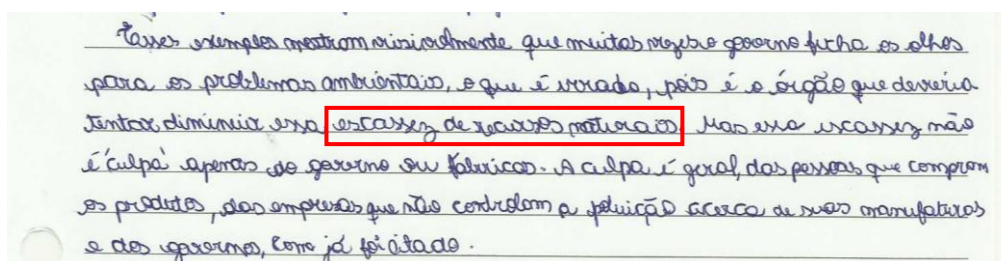 Esses exemplos mostram visivelmente que muitas vezes o governo fecha os olhos
para os problemas ambientais, o que é errado, pois é o órgão que deveria
tentar diminuir essa escassez de recursos naturais. Mas essa escassez não
é 'culpa' apenas do governo ou fábricas. A culpa é geral, das pessoas que compram
os produtos, das empresas que não controlam a poluição acerca de suas manufaturas
e dos governos, como já foi citado.